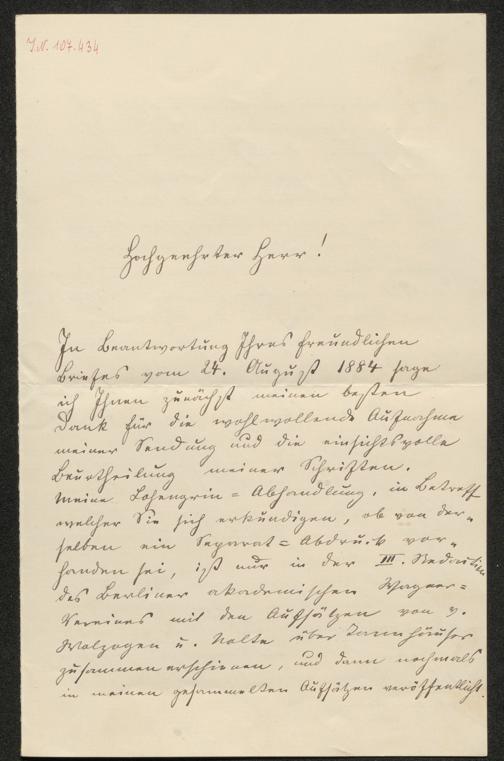 I.N. 107.434
Hochgeehrter Herr!
In Beantwortung Ihres freundlichen
Briefes vom 24. August 1884 sage
ich Ihnen zunächst meinen besten
Dank für die wohlwollende Aufnahme
meiner Sendung und die einsichtsvolle
Beurtheilung meiner Schriften.
Meine Lohengrin=Abhandlung, in Betreff
welcher Sie sich erkundigen, ob von der-
selben ein Separat=Abdruck vor-
handen sei, ist nur in der III.
des Berliner akademischen Wagner=
Vereines mit den Aufsätzen von v.
Wolzogen u. Nolte über Tannhäuser
zusammen erschienen, und dann nochmals
in meinen gesammelten Aufsätzen veröffentlicht.